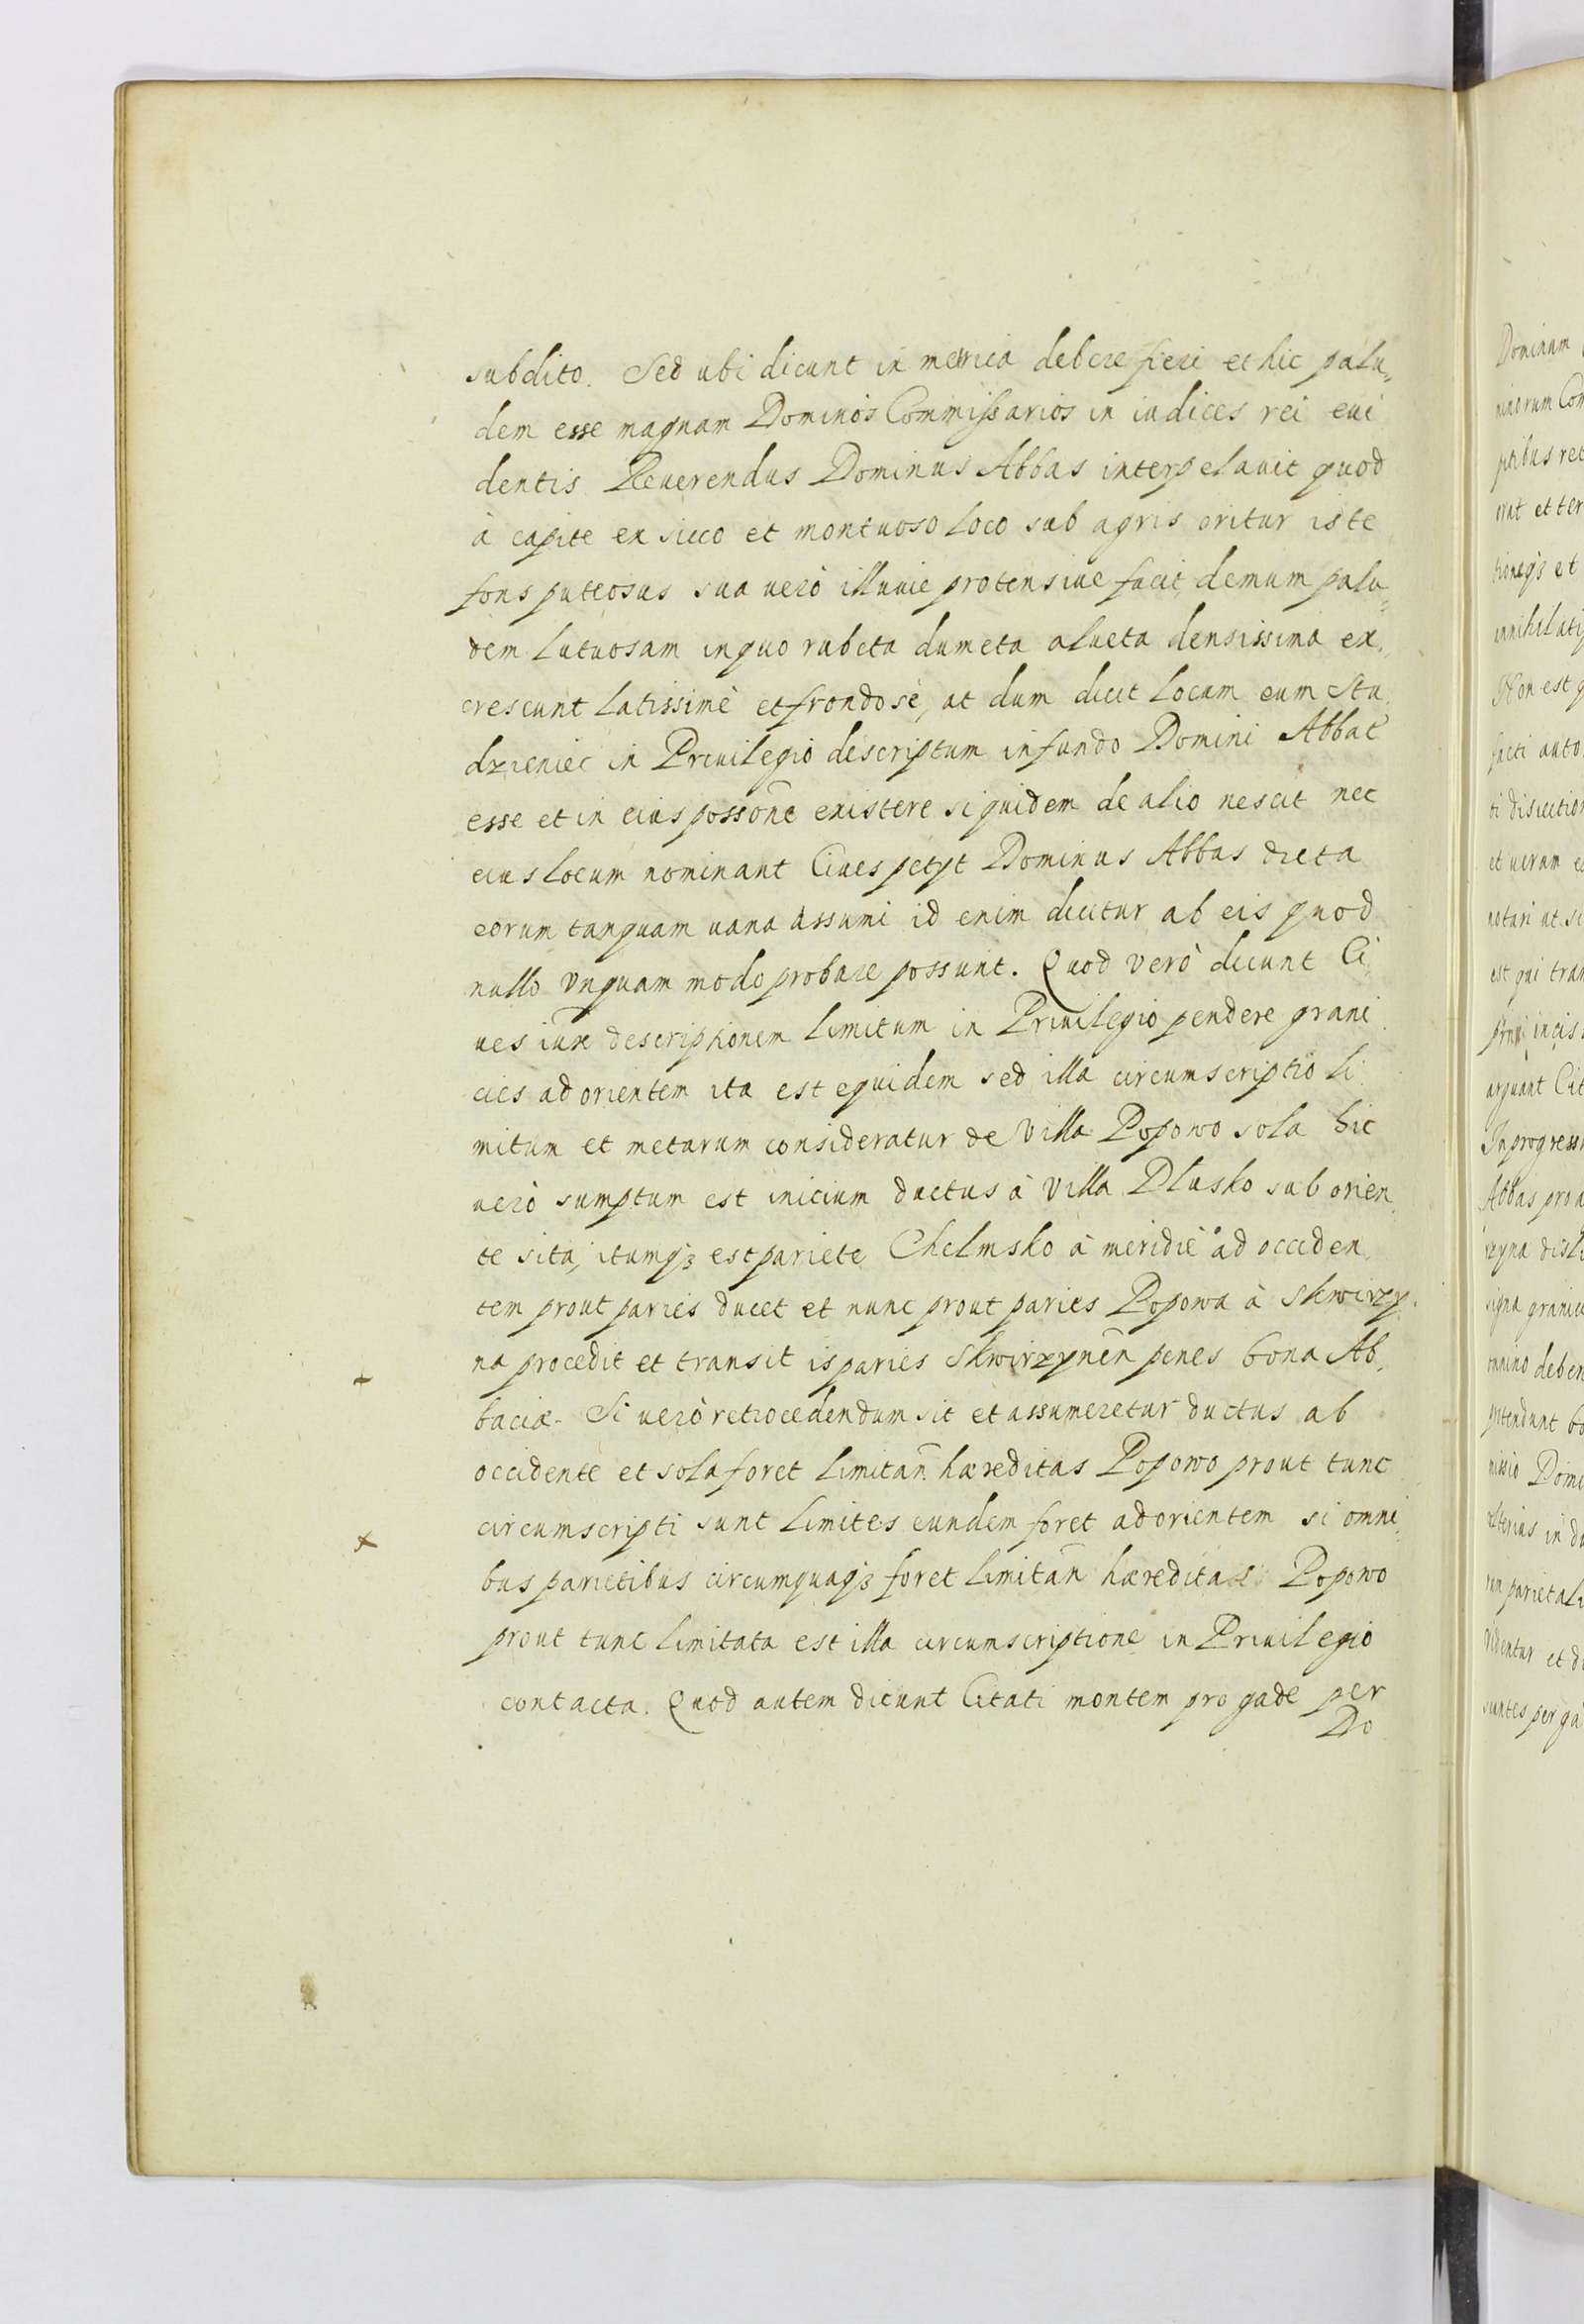 subdito. Sed ubi dicunt in merica debere fieri et hic palu„
dem esse magnam Dominos Commissarios in iudices rei eui
dentis Reuerendus Dominus Abbas interpelauit quod
à capite ex sicco et montuoso loco sub agris oritur iste
fons puteosus sua uerò illuuie protensiue facit demum palu„
dem lutuosam in quo rubeta dumeta alueta densissima ex„
crescunt latissimè et frondosè, at dum dicit locum eum Stu
dzieniec in Priuilegio descriptum in fundo Domini Abbat
esse et in eius possone existere siquidem de alio nescit nec
eius locum nominant Ciues petyt Dominus Abbas dicta
eorum tanquam uana assumi id enim dicitur ab eis quod
nullo vnquam modo probare possunt. Quod verò dicunt Ci
ues iux descriptionem limitum in Priuilegio pendere grani
cies ad orientem ita est equidem sed illa circumscriptio li
mitum et metarum consideratur de villa Popowo sola hic
uerò sumptum est inicium ductus à villa Dlusko sub orien„
te sita, itumq3 est pariete Chelmsko à meridie ad occiden„
tem prout paries ducet et nunc prout paries Popowa à Skwirzy„
na procedit et transit is paries Skwirzynen penes bona Ab„
baciæ. Si uerò retrocedendum sit et assumeretur ductus ab
occidente et sola foret limitan hæreditas Popowo prout tunc
circumscripti sunt limites eundem foret ad orientem si omni„
bus parietibus circumquaq3 foret limitan hæreditas Popowo
prout tunc limitata est illa circumscriptione in Priuilegio
contacta. Quod autem dicunt Citati montem pro gade per
Do
Dominum
et uerum
est qui
Abbas pro
signa